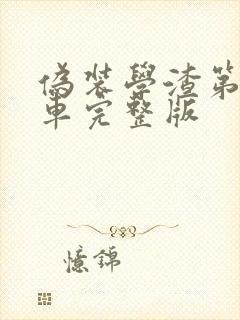 偽裝學渣第
車完整版
憶錦